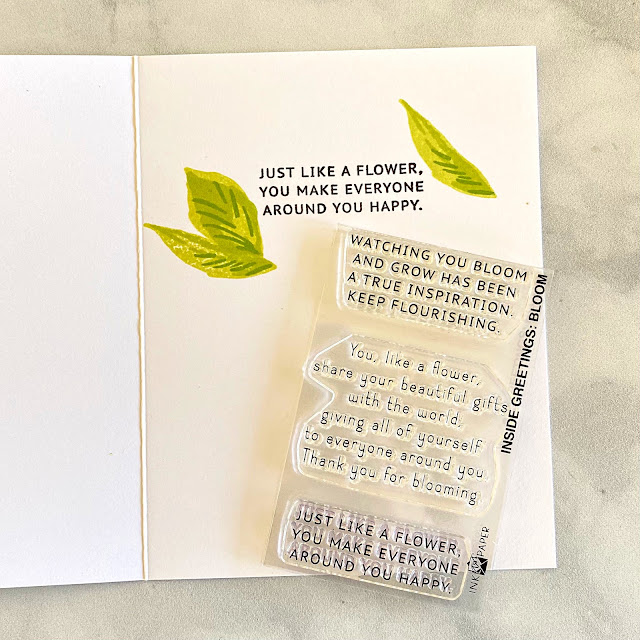 JUST LIKE A FLOWER,
YOU MAKE EVERYONE
AROUND YOU HAPPY.
WATCHING YOU BLOOM
AND GROW HAS BEEN
A TRUE INSPIRATION.
KEEP FLOURISHING.
You, like a flower,
share your beautiful gifts
with the world,
giving all of yourself
to everyone around you.
Thank you for blooming
JUST LIKE A FLOWER,
YOU MAKE EVERYONE
AROUND YOU HAPPY.
INSIDE GREETINGS: BLOOM
INK PAPER